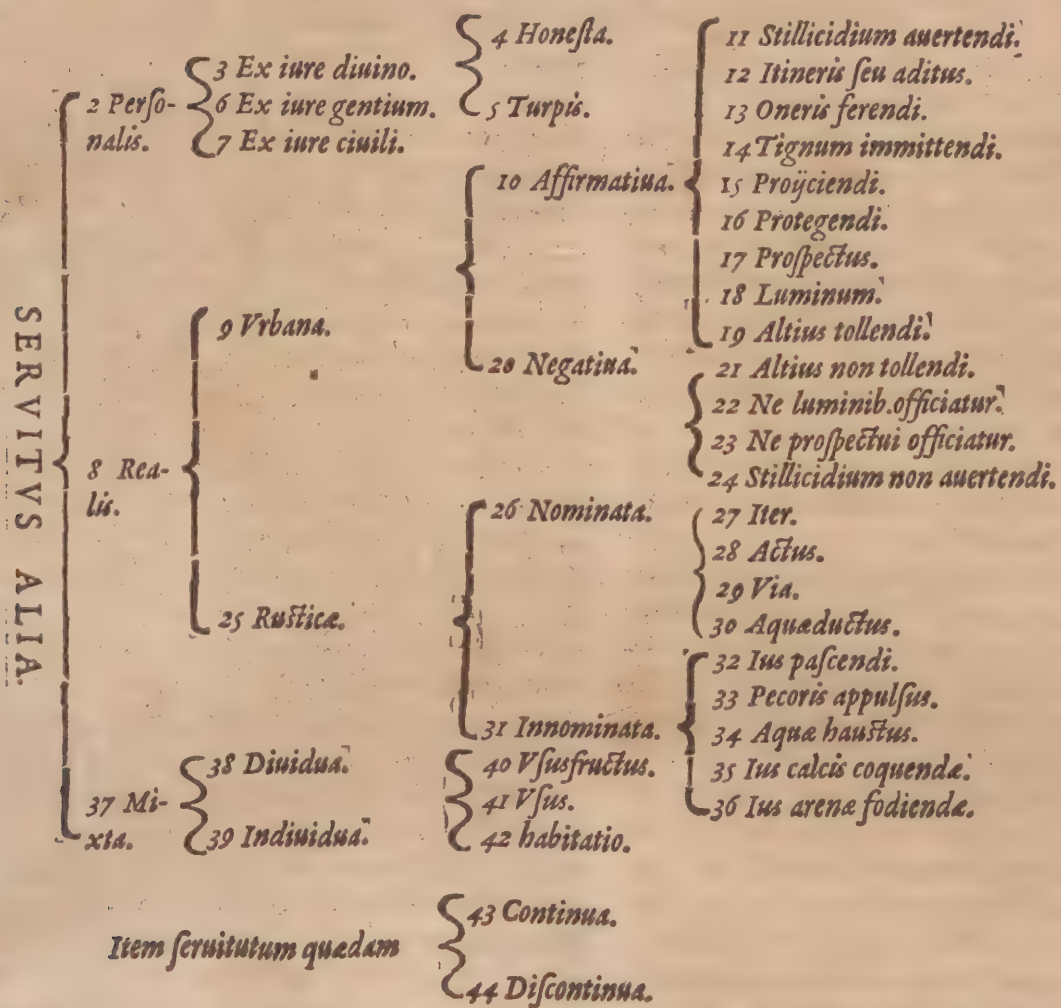 SERVITVS ALIA.
2 Perſo-
nalis.
3 Ex iure diuino.
6 Ex iure gentium.
7 Ex iure ciuili.
4 Honeſta.
5 Turpis.
8 Rea-
lis.
9 Vrbana.
10 Affirmatiua.
11 Stillicidium auertendi.
12 Itineris ſeu aditus.
13 Oneris ferendi.
14 Tignum immittendi.
15 Proijciendi.
16 Protegendi.
17 Proſpectus.
18 Luminum.
19 Altius tollendi.
20 Negatiua.
21 Altius non tollendi.
22 Ne luminib. officiatur.
23 Ne proſpectui officiatur.
24 Stillicidium non auertendi.
25 Ruſticæ.
26 Nominata.
27 Iter.
28 Actus.
29 Via.
30 Aquæductus.
31 Innominata.
32 Ius paſcendi.
33 Pecoris appulſus.
34 Aquæ hauſtus.
35 Ius calcis coquendæ.
36 Ius arenæ fodiendæ.
37 Mi-
xta.
38 Diuidua.
39 Indiuidua.
40 Vſusfructus.
41 Vſus.
42 habitatio.
Item ſeruitutum quædam
43 Continua.
44 Diſcontinua.